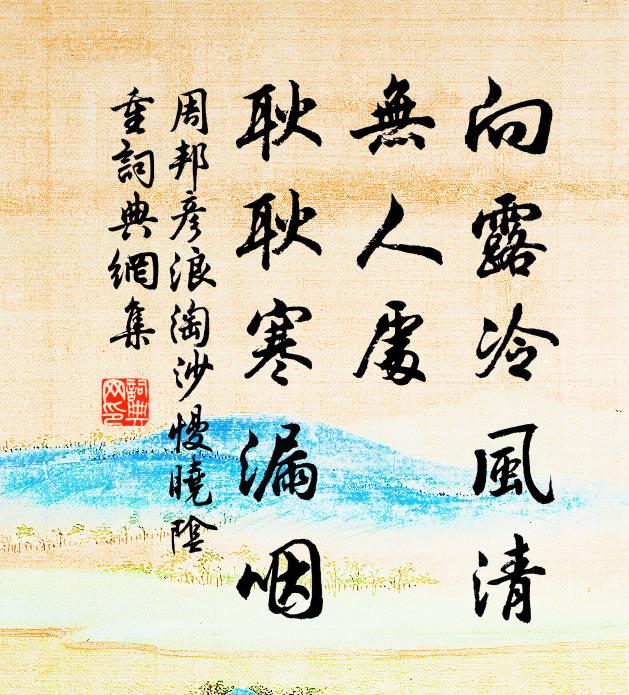 向露冷風清
無人處
耿耿寒漏咽
周邦彥浪淘沙慢曉陰
重詞典網集
詞典网印